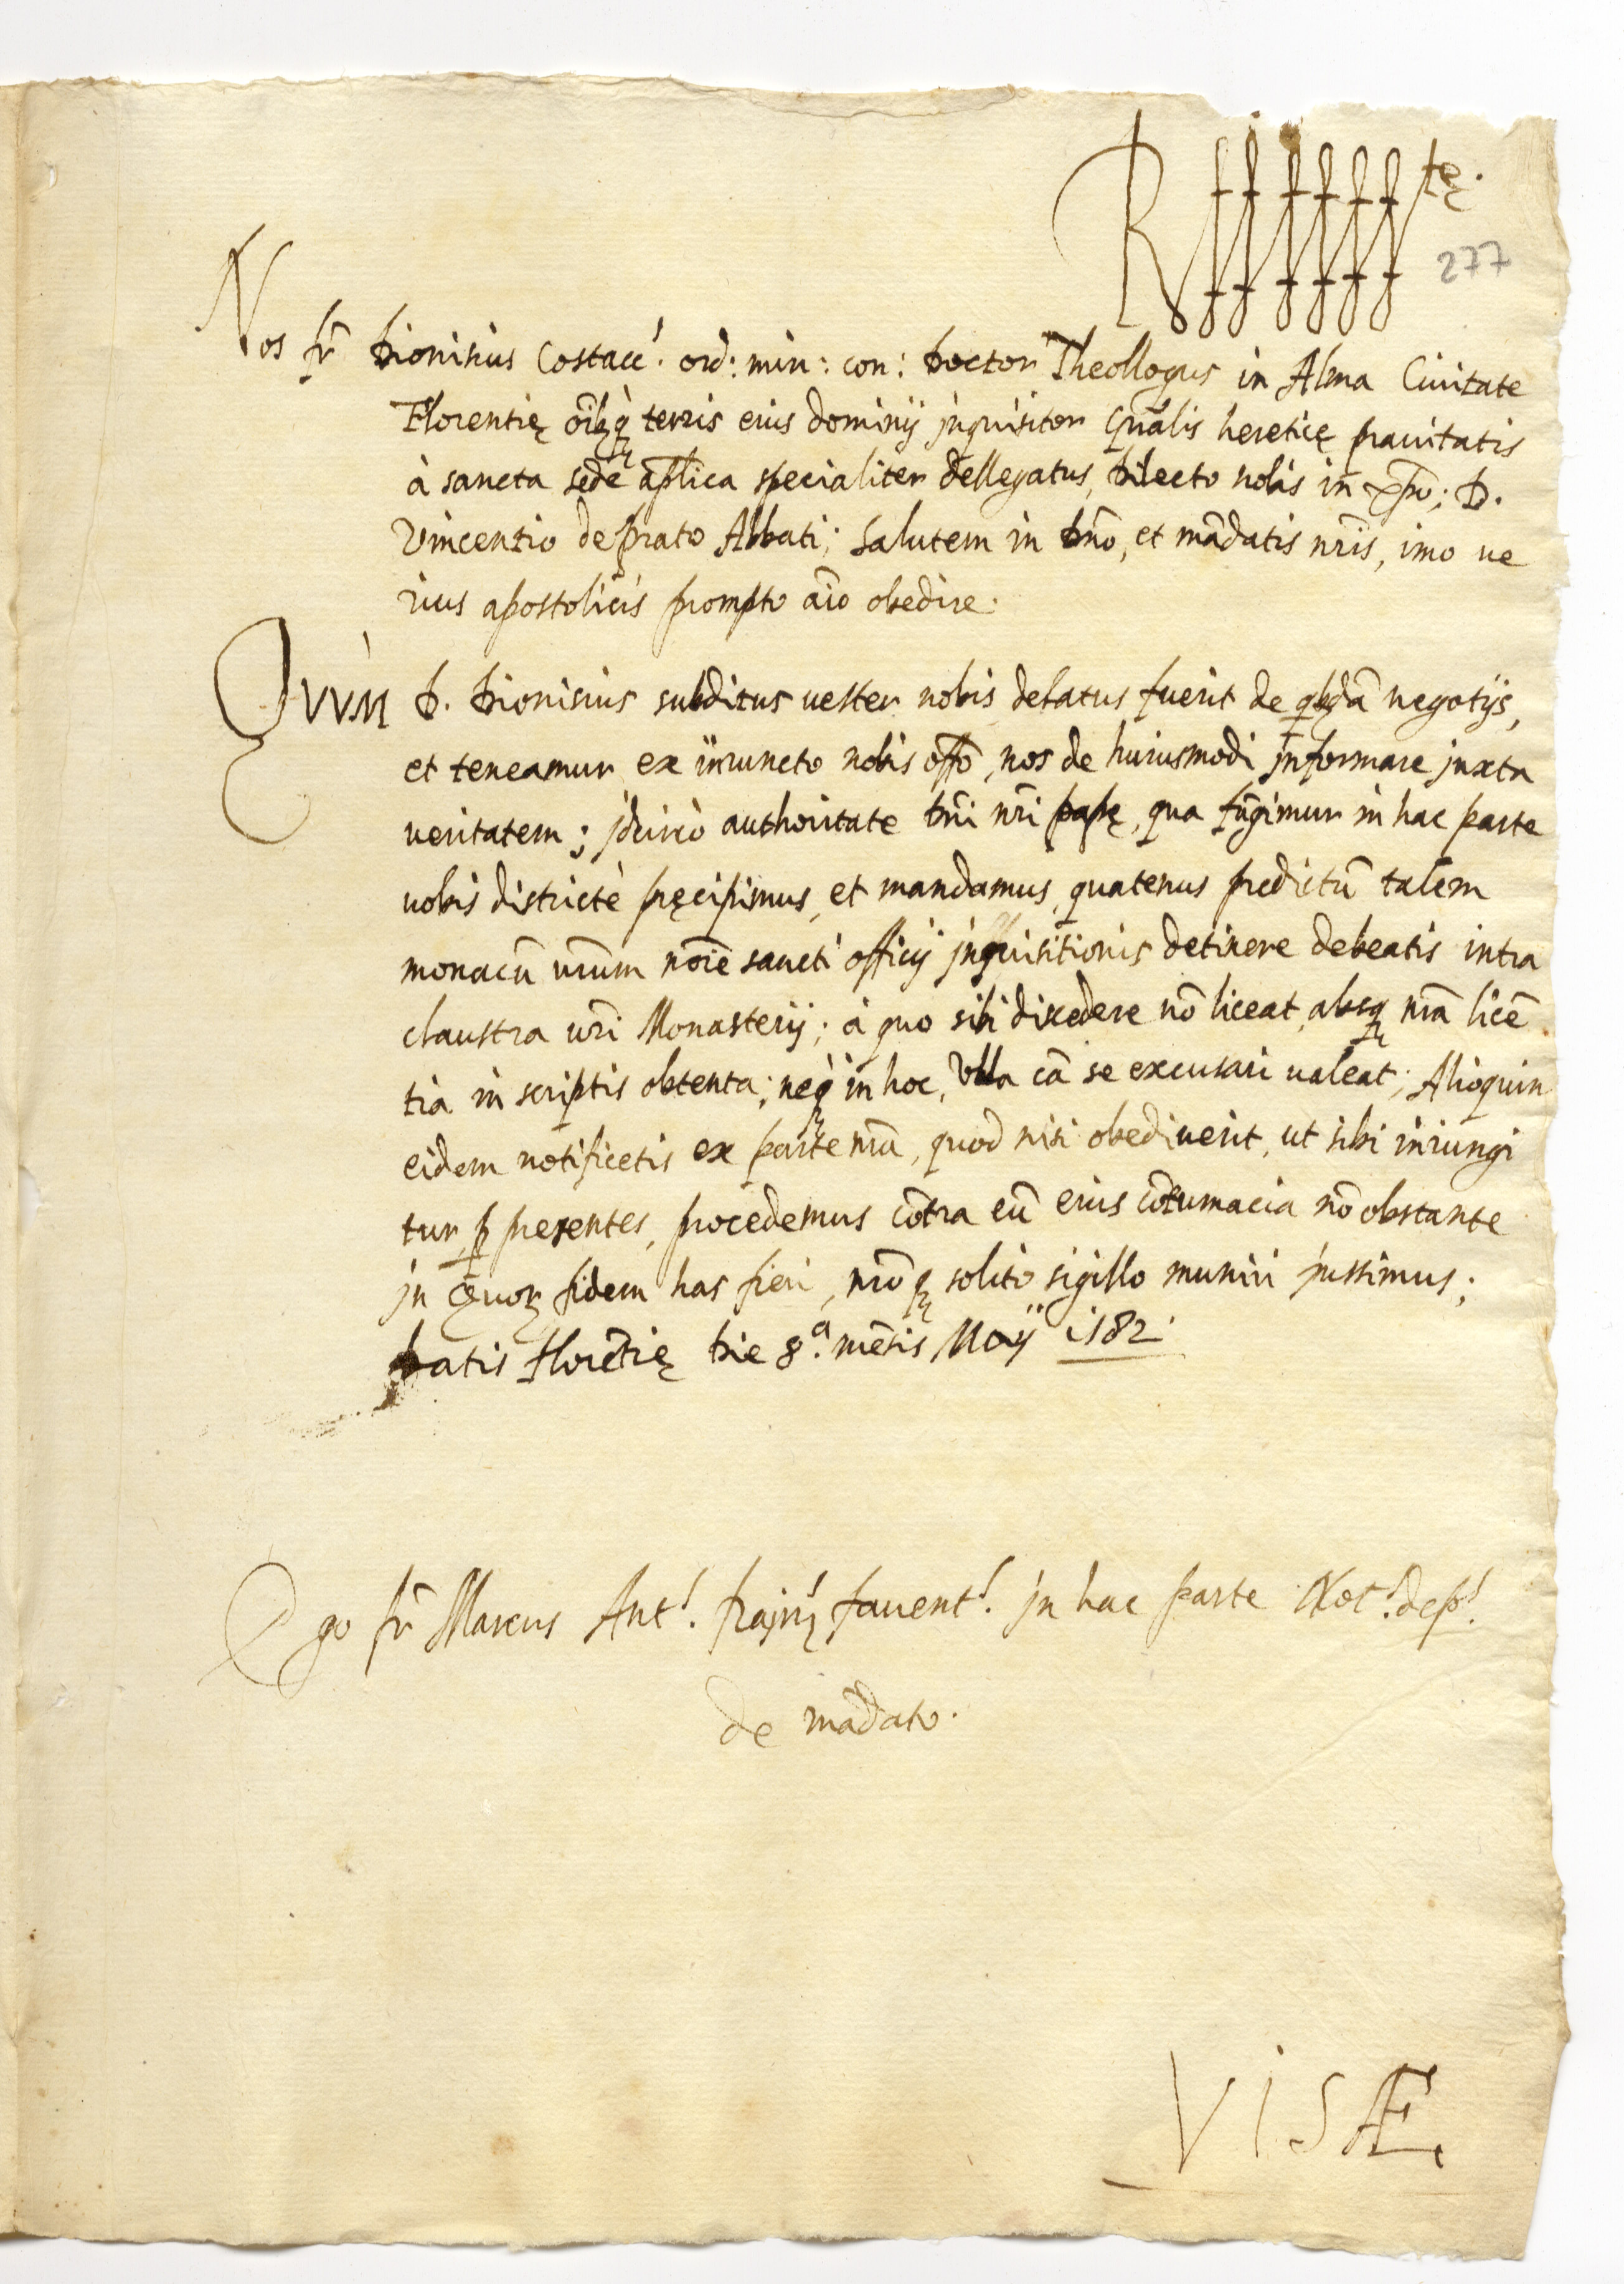 R tę.
277
Nos fr̃ Dionisius Costacc.' ord: min: con: Doctor Theollogus in Alma Ciuitate
Florentię oĩbꝫq̃ȝ terris eius dominij jnquisitor Gñalis hereticę prauitatis
à sancta sede aplĩca specialiter dellegatus, Dilecto nobis in xp̃o; D.
Vincentio de Prato Abbati; Salutem in Dño, et mãdatis nr̃is, imo ue
rius apostolicis prompto aĩo obedire.
QVVM D. Dionisius subditus uester nobis delatus fuerit de qbꝫdã negotijs,
et teneamur ex iniuncto nobis off̃o, nos de huiusmodi jnformare juxta
veritatem; jdcircò authoritate Dñi nr̃i papę, qua fũgimur in hac parte
uobis districtè pręcipimus, et mandamus, quatenus predictũ talem
monacũ vr̃um noĩe sancti officij jnquisitionis detinere debeatis intra
claustra ur̃i Monasterij; à quo sibi discedere nõ liceat, absqȝ nr̃a licẽ
tia in scriptis obtenta; neqȝ in hoc, Vlla cã se excusari ualeat; Alioquin
eidem notificetis ex parte nr̃a, quod nisi obediuerit, ut sibi iniungi
tur, ꝑ presentes, procedemus cõtra eũ eius cõtumacia nõ obstante
jn Quorꝫ fidem has fieri, nr̃oqȝ solito sigillo muniri jussimus;
Datis Florẽtię Die 8.ª mẽsis Maij 1582.
Ego fr̃ Marcus Ant.' fauent.' jn hac parte Not.' dep.'
de mãdato.
VISÆ